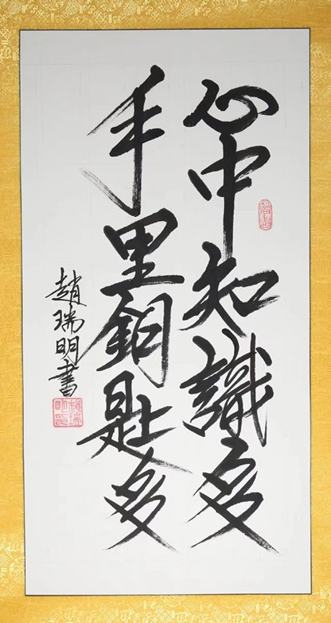 心中知識多
手里匙多
趙瑞明書